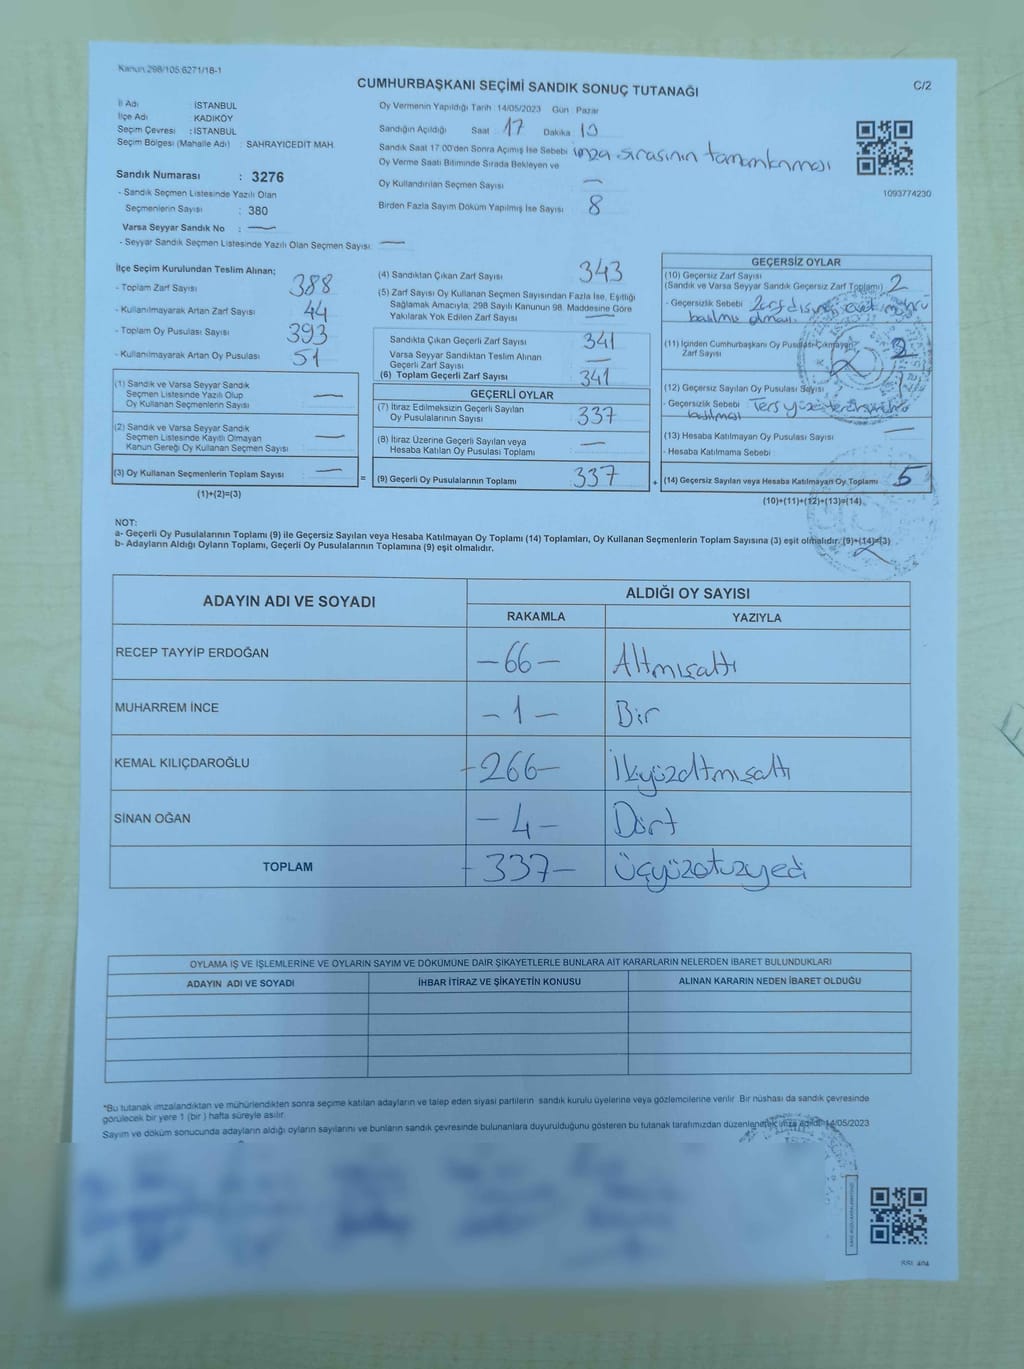 Kanun 298/105 6271/18-1
CUMHURBAŞKANI SEÇİMİ SANDIK SONUÇ TUTANAĞI
C/2
İl Adı : İSTANBUL
İlçe Adı : KADIKÖY
Seçim Çevresi : İSTANBUL
Seçim Bölgesi (Mahalle Adı) : SAHRAYICEDİT MAH.
Sandık Numarası : 3276
- Sandık Seçmen Listesinde Yazılı Olan
Seçmenlerin Sayısı : 380
Varsa Seyyar Sandık No : —
- Seyyar Sandık Seçmen Listesinde Yazılı Olan Seçmen Sayısı: —
Oy Vermenin Yapıldığı Tarih : 14/05/2023 Gün : Pazar
Sandığın Açıldığı Saat : 17 Dakika : 10
Sandık Saat 17:00'den Sonra Açılmış İse Sebebi imza sırasının tamamlanması
Oy Verme Saati Bitiminde Sırada Bekleyen ve
Oy Kullandırılan Seçmen Sayısı —
Birden Fazla Sayım Döküm Yapılmış İse Sayısı 8
1093774230
İlçe Seçim Kurulundan Teslim Alınan;
- Toplam Zarf Sayısı 388
- Kullanılmayarak Artan Zarf Sayısı 44
- Toplam Oy Pusulası Sayısı 393
- Kullanılmayarak Artan Oy Pusulası 51
(1) Sandık ve Varsa Seyyar Sandık
Seçmen Listesinde Yazılı Olup
Oy Kullanan Seçmenlerin Sayısı —
(2) Sandık ve Varsa Seyyar Sandık
Seçmen Listesinde Kayıtlı Olmayan
Kanun Gereği Oy Kullanan Seçmen Sayısı —
(3) Oy Kullanan Seçmenlerin Toplam Sayısı —
(1)+(2)=(3)
(4) Sandıktan Çıkan Zarf Sayısı 343
(5) Zarf Sayısı Oy Kullanan Seçmen Sayısından Fazla İse, Eşitliği
Sağlamak Amacıyla, 298 Sayılı Kanunun 98. Maddesine Göre
Yakılarak Yok Edilen Zarf Sayısı —
Sandıkta Çıkan Geçerli Zarf Sayısı 341
Varsa Seyyar Sandıktan Teslim Alınan
Geçerli Zarf Sayısı —
(6) Toplam Geçerli Zarf Sayısı 341
GEÇERLİ OYLAR
(7) İtiraz Edilmeksizin Geçerli Sayılan
Oy Pusulalarının Sayısı 337
(8) İtiraz Üzerine Geçerli Sayılan veya
Hesaba Katılan Oy Pusulası Toplamı —
= (9) Geçerli Oy Pusulalarının Toplamı 337
GEÇERSİZ OYLAR
(10) Geçersiz Zarf Sayısı
(Sandık ve Varsa Seyyar Sandık Geçersiz Zarf Toplamı) 2
- Geçersizlik Sebebi Zarf dışına evet mührü
basılmış olması.
(11) İçinden Cumhurbaşkanı Oy Pusulası Çıkmayan
Zarf Sayısı
(12) Geçersiz Sayılan Oy Pusulası Sayısı 1
- Geçersizlik Sebebi : Ters yüze
basılması
(13) Hesaba Katılmayan Oy Pusulası Sayısı —
- Hesaba Katılmama Sebebi
+ (14) Geçersiz Sayılan veya Hesaba Katılmayan Oy Toplamı 5
(10)+(11)+(12)+(13)=(14)
NOT:
a- Geçerli Oy Pusulalarının Toplamı (9) ile Geçersiz Sayılan veya Hesaba Katılmayan Oy Toplamı (14) Toplamları, Oy Kullanan Seçmenlerin Toplam Sayısına (3) eşit olmalıdır. (9)+(14)=(3)
b- Adayların Aldığı Oyların Toplamı, Geçerli Oy Pusulalarının Toplamına (9) eşit olmalıdır.
ADAYIN ADI VE SOYADI
ALDIĞI OY SAYISI
RAKAMLA YAZIYLA
RECEP TAYYİP ERDOĞAN —66— Altmışaltı
MUHARREM İNCE —1— Bir
KEMAL KILIÇDAROĞLU —266— İkiyüzaltmışaltı
SİNAN OĞAN —4— Dört
TOPLAM —337— Üçyüzotuzyedi
OYLAMA İŞ VE İŞLEMLERİNE VE OYLARIN SAYIM VE DÖKÜMÜNE DAİR ŞİKAYETLERLE BUNLARA AİT KARARLARIN NELERDEN İBARET BULUNDUKLARI
ADAYIN ADI VE SOYADI İHBAR İTİRAZ VE ŞİKAYETİN KONUSU ALINAN KARARIN NEDEN İBARET OLDUĞU
*Bu tutanak imzalandıktan ve mühürlendikten sonra seçime katılan adayların ve talep eden siyasi partilerin sandık kurulu üyelerine veya gözlemcilerine verilir. Bir nüshası da sandık çevresinde
görülecek bir yere 1 (bir ) hafta süreyle asılır.
Sayım ve döküm sonucunda adayların aldığı oyların sayılarını ve bunların sandık çevresinde bulunanlara duyurulduğunu gösteren bu tutanak tarafımızdan düzenlenerek imza edildi. 14/05/2023